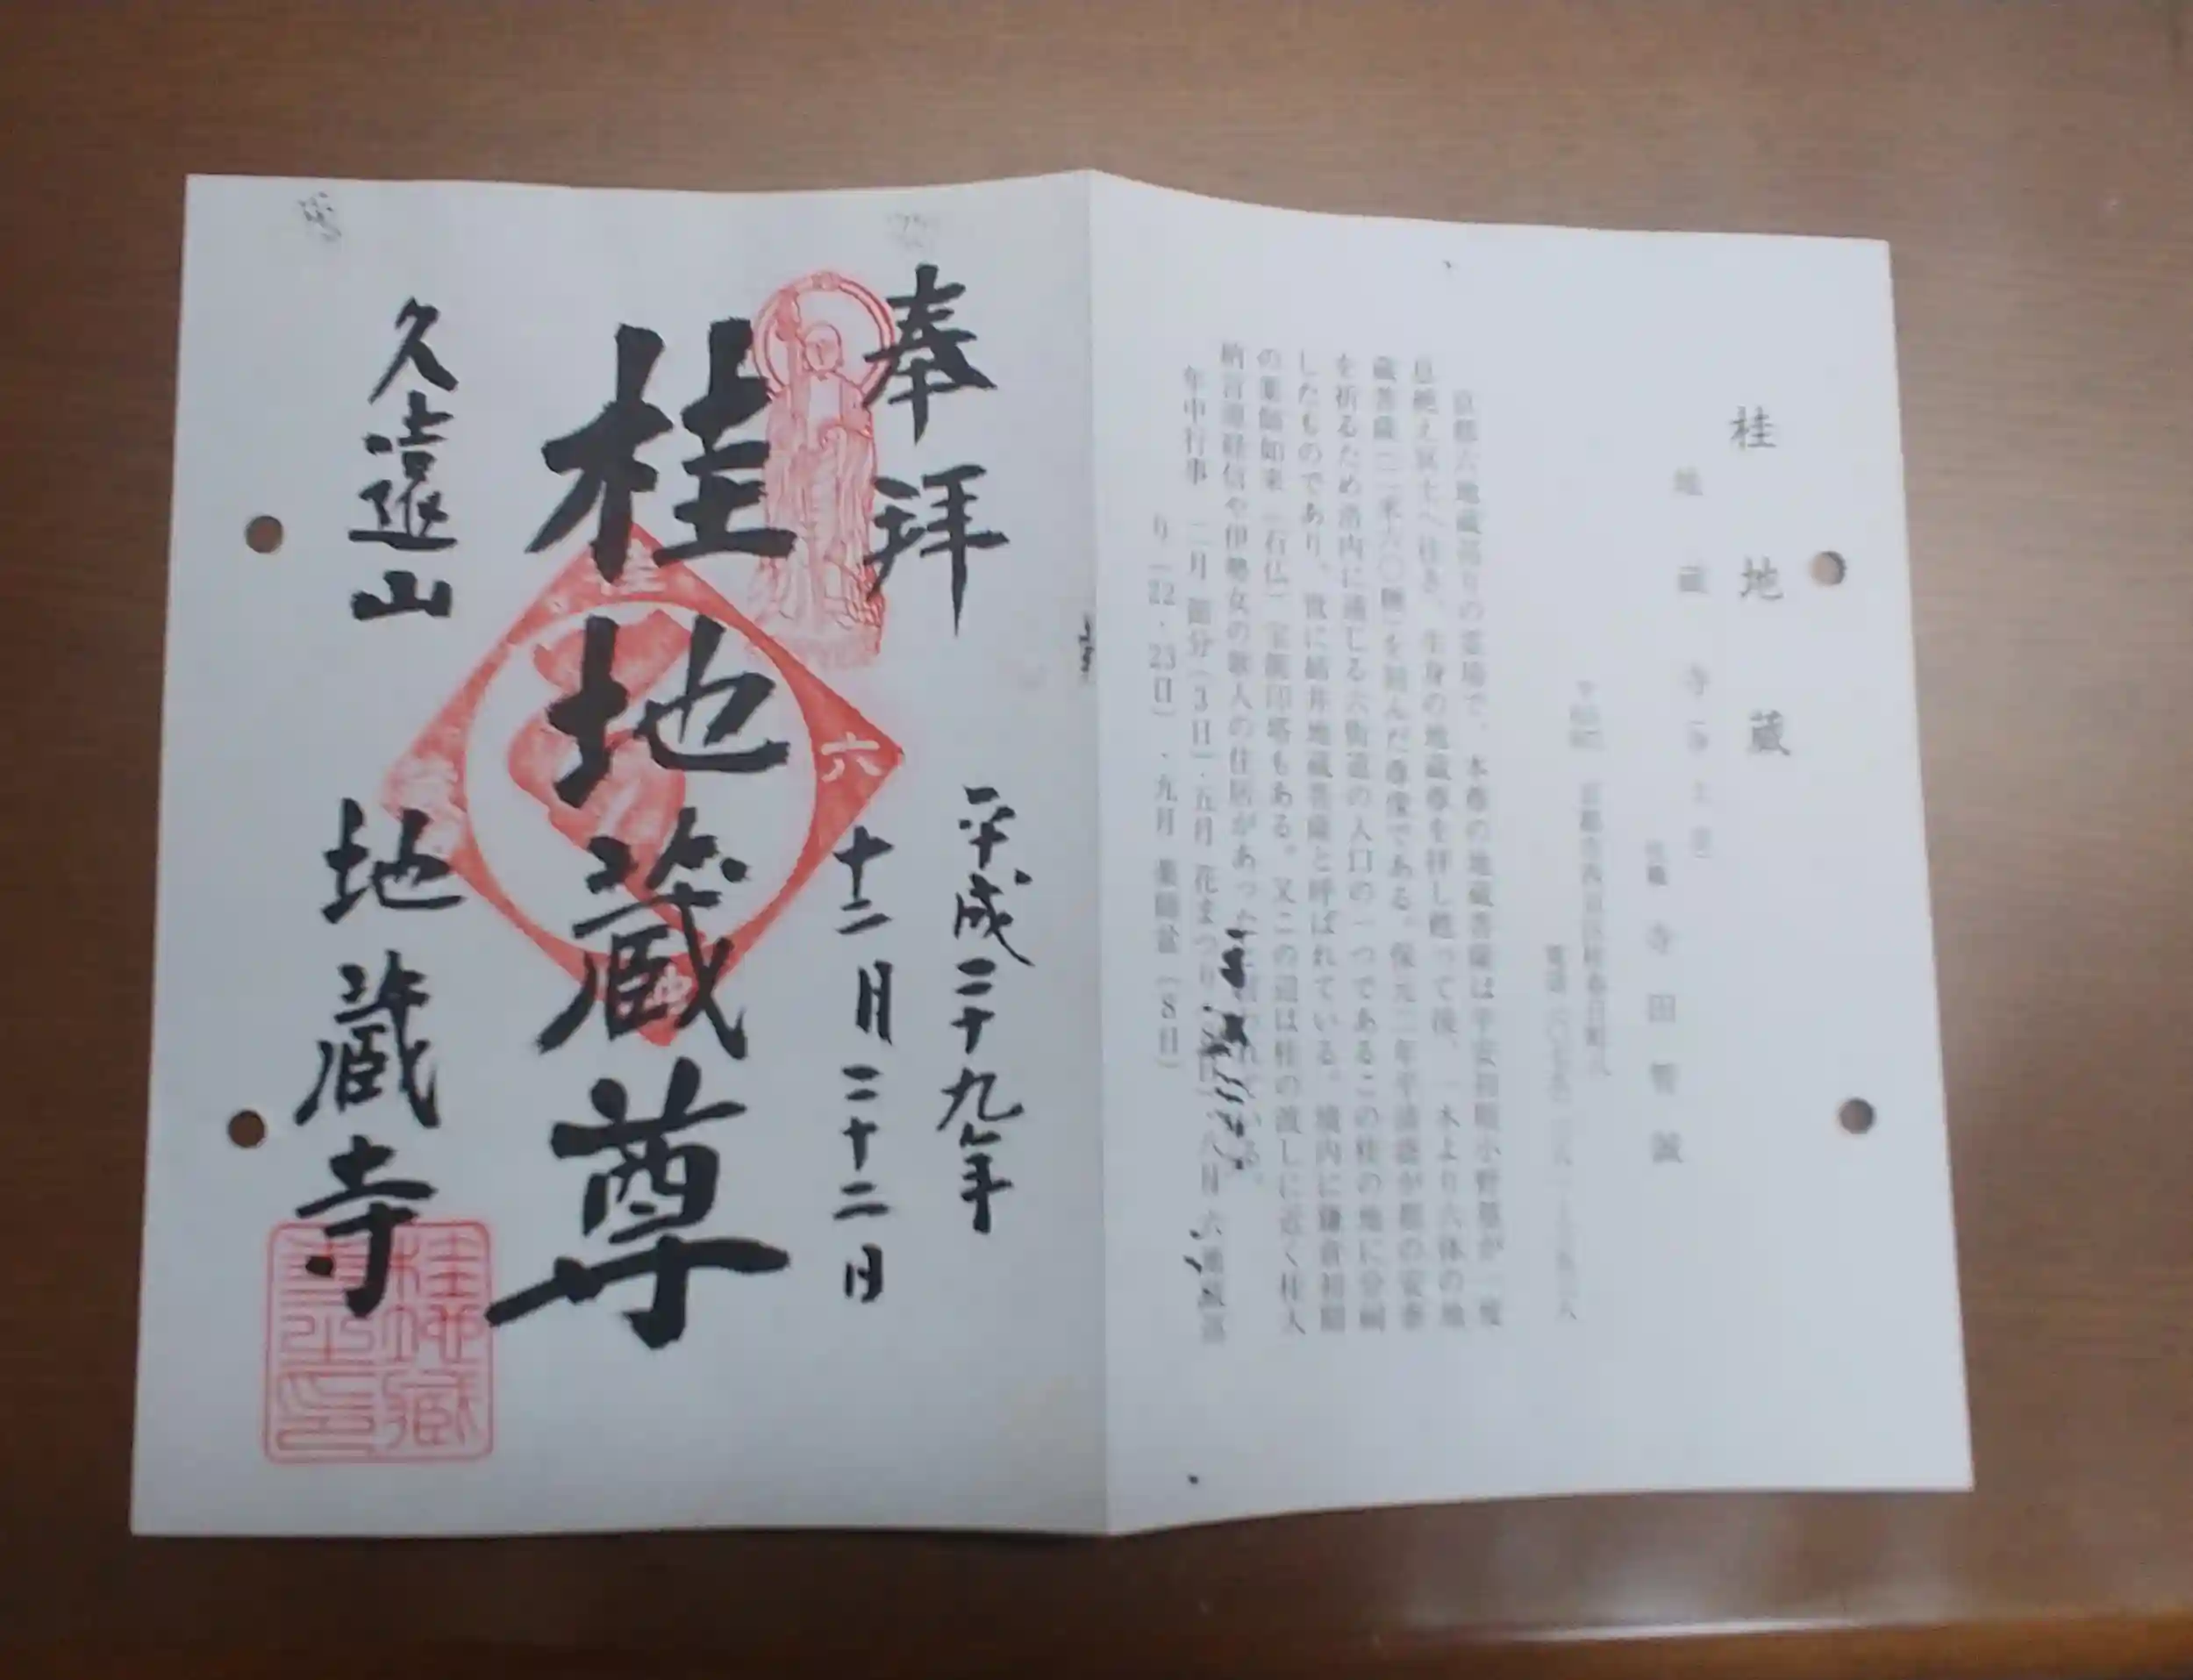 桂地蔵
地蔵寺（浄土宗）
住職 寺田
京都六地蔵巡りの霊場で、本尊の地蔵菩薩は平安初期小野篁が一度
息絶え冥土へ往き、生身の地蔵尊を拝し甦って後、一木より六体の地
蔵菩薩を刻んだ尊像である。保元二年平清盛が都の安泰
を祈るため洛内に通じる六街道の入口の一つであるこの桂の地に分祠
したものであり、世に姉井地蔵菩薩と呼ばれている。境内に鎌倉初期
の薬師如来（石仏）宝篋印塔もある。又この辺は桂の渡しに近く桂大
納言源経信や伊勢女の歌人の住居があった
年中行事 二月 節分（3日）・五月 花まつり 八月 六地蔵巡
り（22・23日）・九月 薬師盆（8日）
奉拝
平成二十九年
十二月二十二日
桂地蔵尊
久遠山
地蔵寺
六
桂地蔵